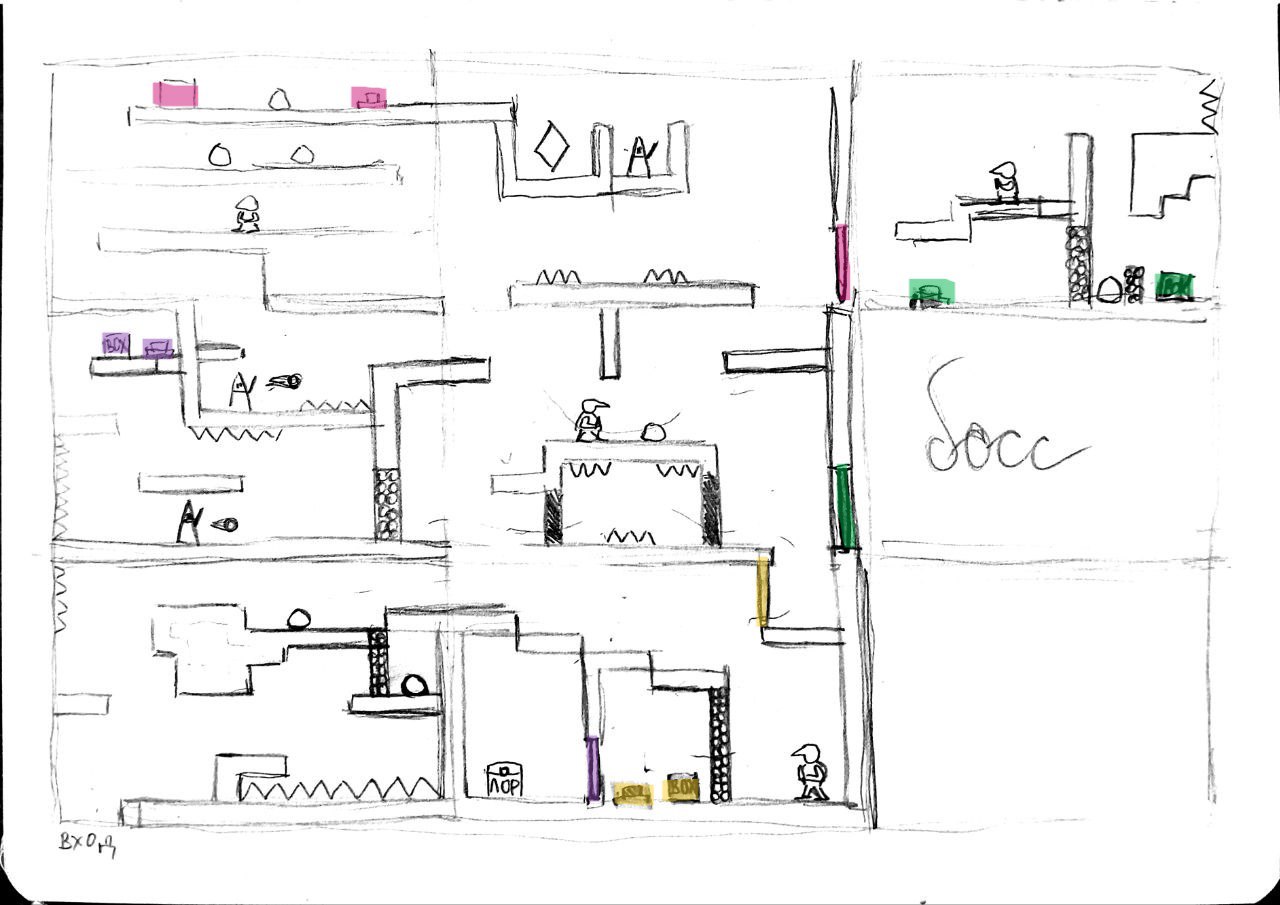 BOX
BOX
босс
ЛОР
BOX
ВХОД